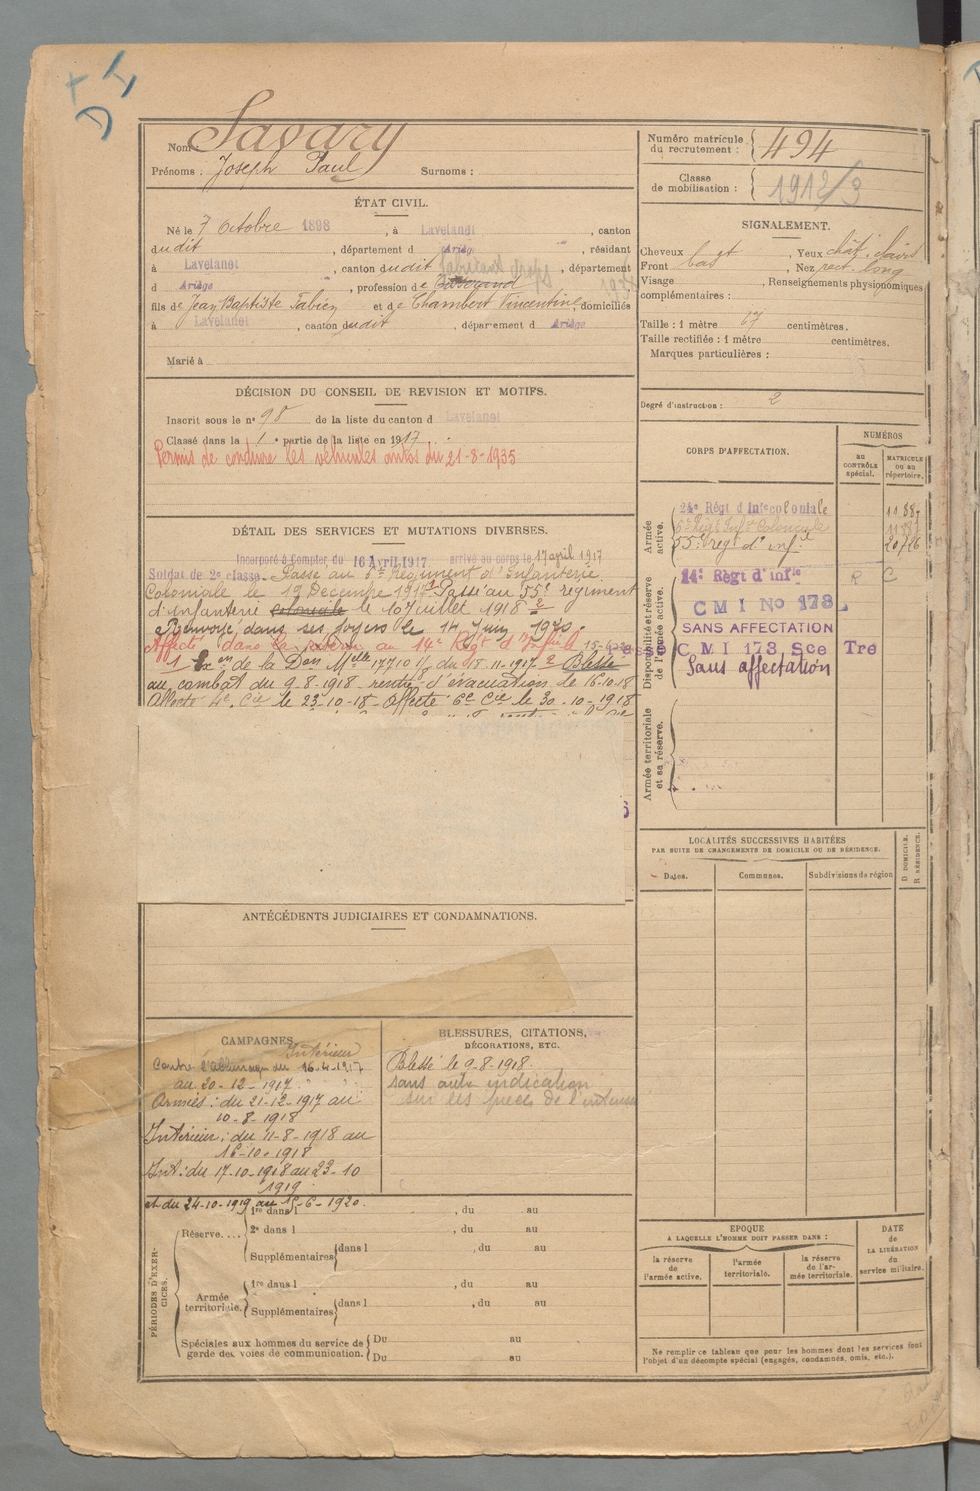 Nom : Savary
Prénoms : Joseph Paul Surnoms :
Numéro matricule du recrutement : 494
Classe de mobilisation : 1912/3
ÉTAT CIVIL.
Né le 7 Octobre 1898, à Lavelanet, canton
dudit, département d Ariège, résidant
à Lavelanet, canton dudit, département
d Ariège, profession de
fils de Jean Baptiste Fabien et de Chambert Vincentine, domiciliés
à Lavelanet, canton dudit, département d Ariège
Marié à
SIGNALEMENT.
Cheveux, Yeux chât. clairs
Front bas, Nez rect. long
Visage, Renseignements physionomiques
complémentaires :
Taille : 1 mètre 67 centimètres.
Taille rectifiée : 1 mètre centimètres.
Marques particulières :
Degré d'instruction : 2
DÉCISION DU CONSEIL DE REVISION ET MOTIFS.
Inscrit sous le n° 98 de la liste du canton d Lavelanet
Classé dans la 1e partie de la liste en 1917.
Permis de conduire les véhicules autos du 21-8-1935
DÉTAIL DES SERVICES ET MUTATIONS DIVERSES.
Incorporé à Compter du 16 Avril 1917 arrivé au corps le 17 april 1917
Soldat de 2e classe. Passé au 5e Régiment d'Infanterie
Coloniale le 19 Décembre 1917. Passé au 55e régiment
d'infanterie coloniale le 10 Juillet 1918
Renvoyé dans ses foyers le 14 Juin 1920.
Affecté dans la réserve au 14e Régt d'Infie
de la Don Mlle 17710 1/8 du 18-11-1917 Blessé
au combat du 9-8-1918 rentré d'évacuation le 16-10-18
Affecté 4e Cie le 23-10-18 Affecté 6e Cie le 30-10-1918
CORPS D'AFFECTATION.
NUMÉROS
au CONTRÔLE spécial.
MATRICULE ou au répertoire.
Armée active.
24e Régt d'Infie coloniale 11887
5e Régt Infie Coloniale
55e régt d'infie 20726
Disponibilité et réserve de l'armée active.
14e Régt d'Infie R C
C M I No 173
SANS AFFECTATION
C M I 173 Sce Tre
Sans affectation
Armée territoriale et sa réserve.
LOCALITÉS SUCCESSIVES HABITÉES
PAR SUITE DE CHANGEMENTS DE DOMICILE OU DE RÉSIDENCE.
Dates. Communes. Subdivisions de région
D. DOMICILE. R. RÉSIDENCE.
ANTÉCÉDENTS JUDICIAIRES ET CONDAMNATIONS.
CAMPAGNES
Intérieur
Contre l'Allemagne du 16-4-1917
au 20-12-1917.
Armées : du 21-12-1917 au
10-8-1918
Intérieur : du 11-8-1918 au
16-10-1918
Int : du 17-10-1918 au 23-10
1919
et du 24-10-1919 au 15-6-1920.
BLESSURES, CITATIONS,
DÉCORATIONS, ETC.
Blessé le 9-8-1918.
sans autre indication
sur les pièces de l'intéressé
PÉRIODES D'EXERCICES.
Réserve....
1re dans l, du au
2e dans l, du au
Supplémentaires dans l, du au
Armée territoriale.
1re dans l, du au
Supplémentaires dans l, du au
Spéciales aux hommes du service de
garde des voies de communication.
Du au
Du au
EPOQUE
A LAQUELLE L'HOMME DOIT PASSER DANS :
la réserve de l'armée active.
l'armée territoriale.
la réserve de l'armée territoriale.
DATE de LA LIBÉRATION du service militaire.
Ne remplir ce tableau que pour les hommes dont les services font
l'objet d'un décompte spécial (engagés, condamnés, omis, etc.).